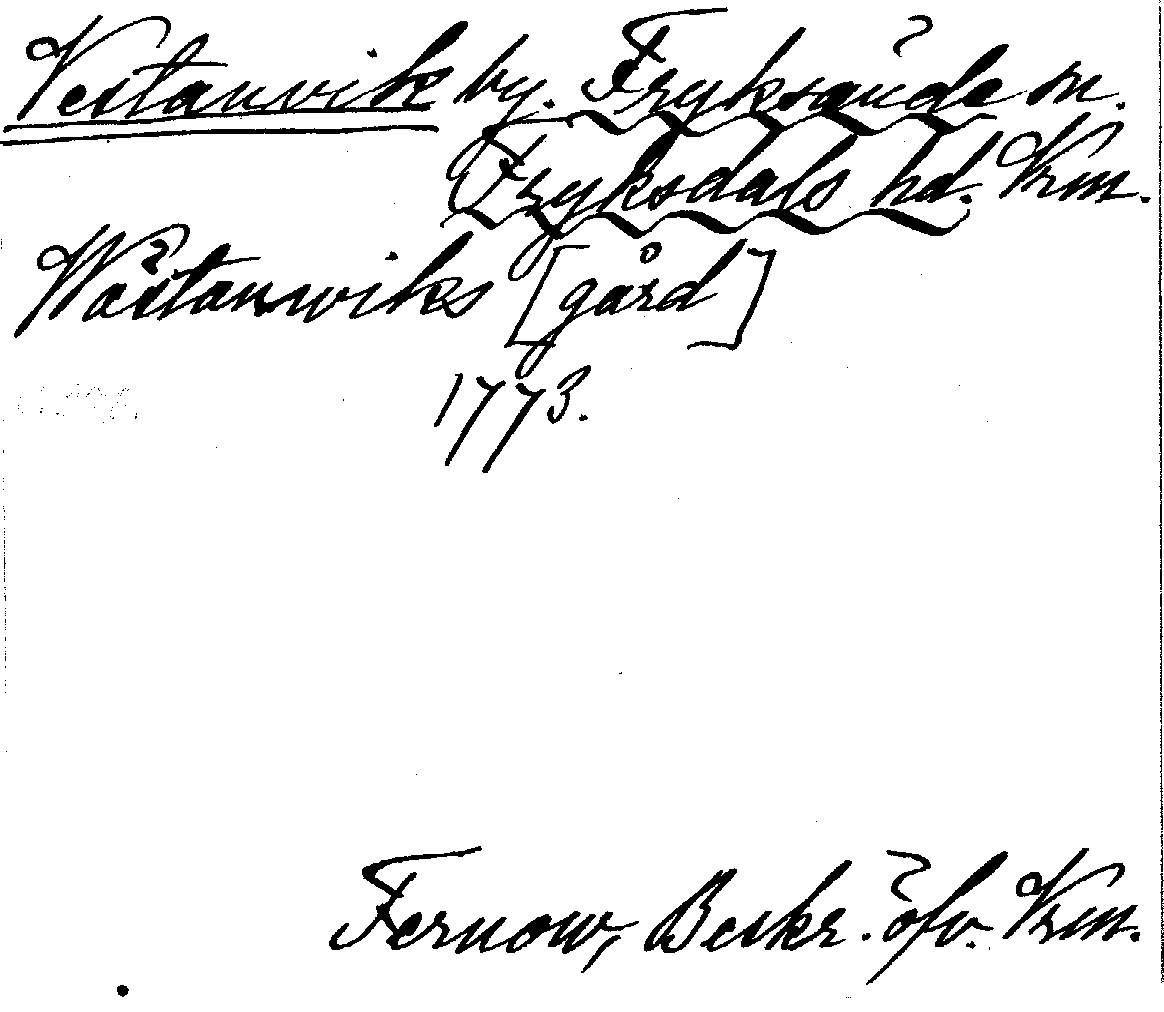 Vestanvik by. Fryksände sn.
Fryksdals hd. Vrm.
Wästanwiks [gård]
1773.
Fernow, Beskr. öfv. Vrm.